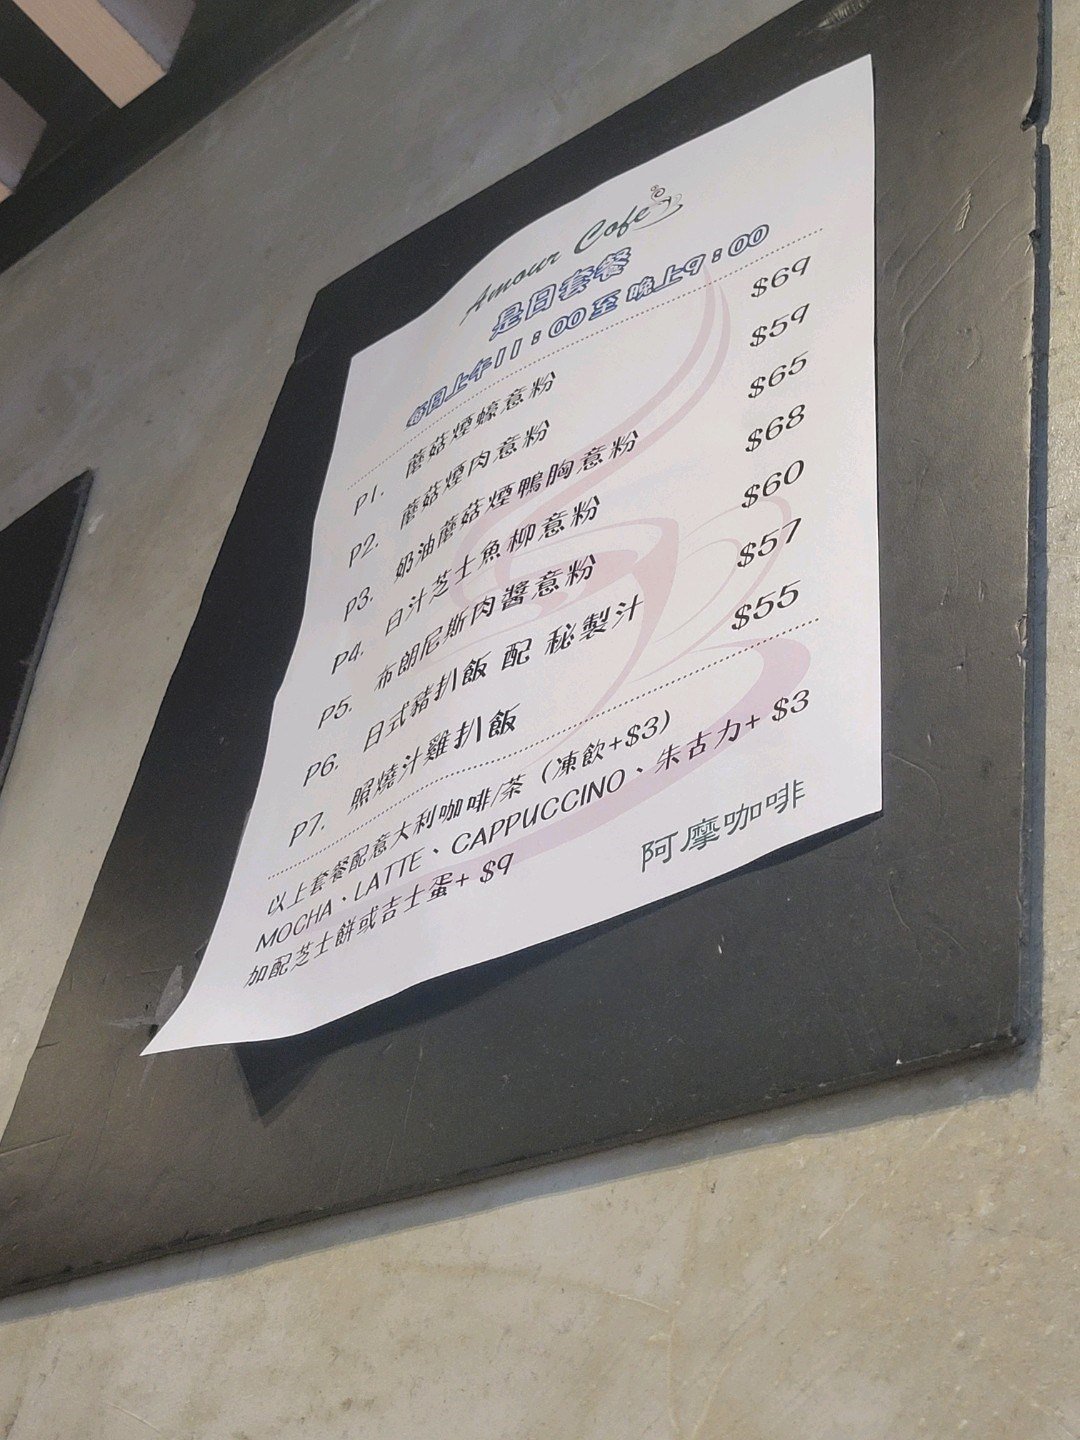 Amour Cafe
是日套餐
每日上午11：00至 晚上9：00
P1. 蘑菇煙蠔意粉 $69
P2. 蘑菇煙肉意粉 $59
P3. 奶油蘑菇煙鴨胸意粉 $65
P4. 白汁芝士魚柳意粉 $68
P5. 布朗尼斯肉醬意粉 $60
P6. 日式豬扒飯 配 秘製汁 $57
P7. 照燒汁雞扒飯 $55
以上套餐配意大利咖啡/茶（凍飲+$3）
MOCHA、LATTE、CAPPUCCINO、朱古力+ $3
加配芝士餅或吉士蛋+ $9
阿摩咖啡